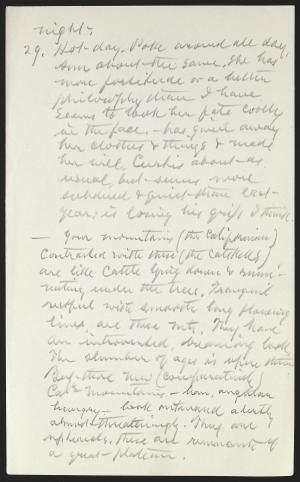 night.
29. Hot day. Poke around all day,
Ann about the same. She has
more fortitude or a better
philosophy than I have
seems to look her fate coolly
in the face, - has given away
her clothes & things & made
her will. Curtis about as
usual, but seems more
subdued & quiet than last
year; is losing his grip I think.
— Your mountains (the California)
Contrasted with these (the Catskills)
are like Cattle lying down & rumi-
nating under the trees. Tranquil
restful with smooth long flowing
lines, are these Mts. They have
an introverted, dreamy look
The slumber of ages is upon them
But those new (comparatively)
Cal. Mountains - lean, angular
hungry - look outward alertly
almost threateningly. They are
upheavals, these are remnants of
a great plateau.